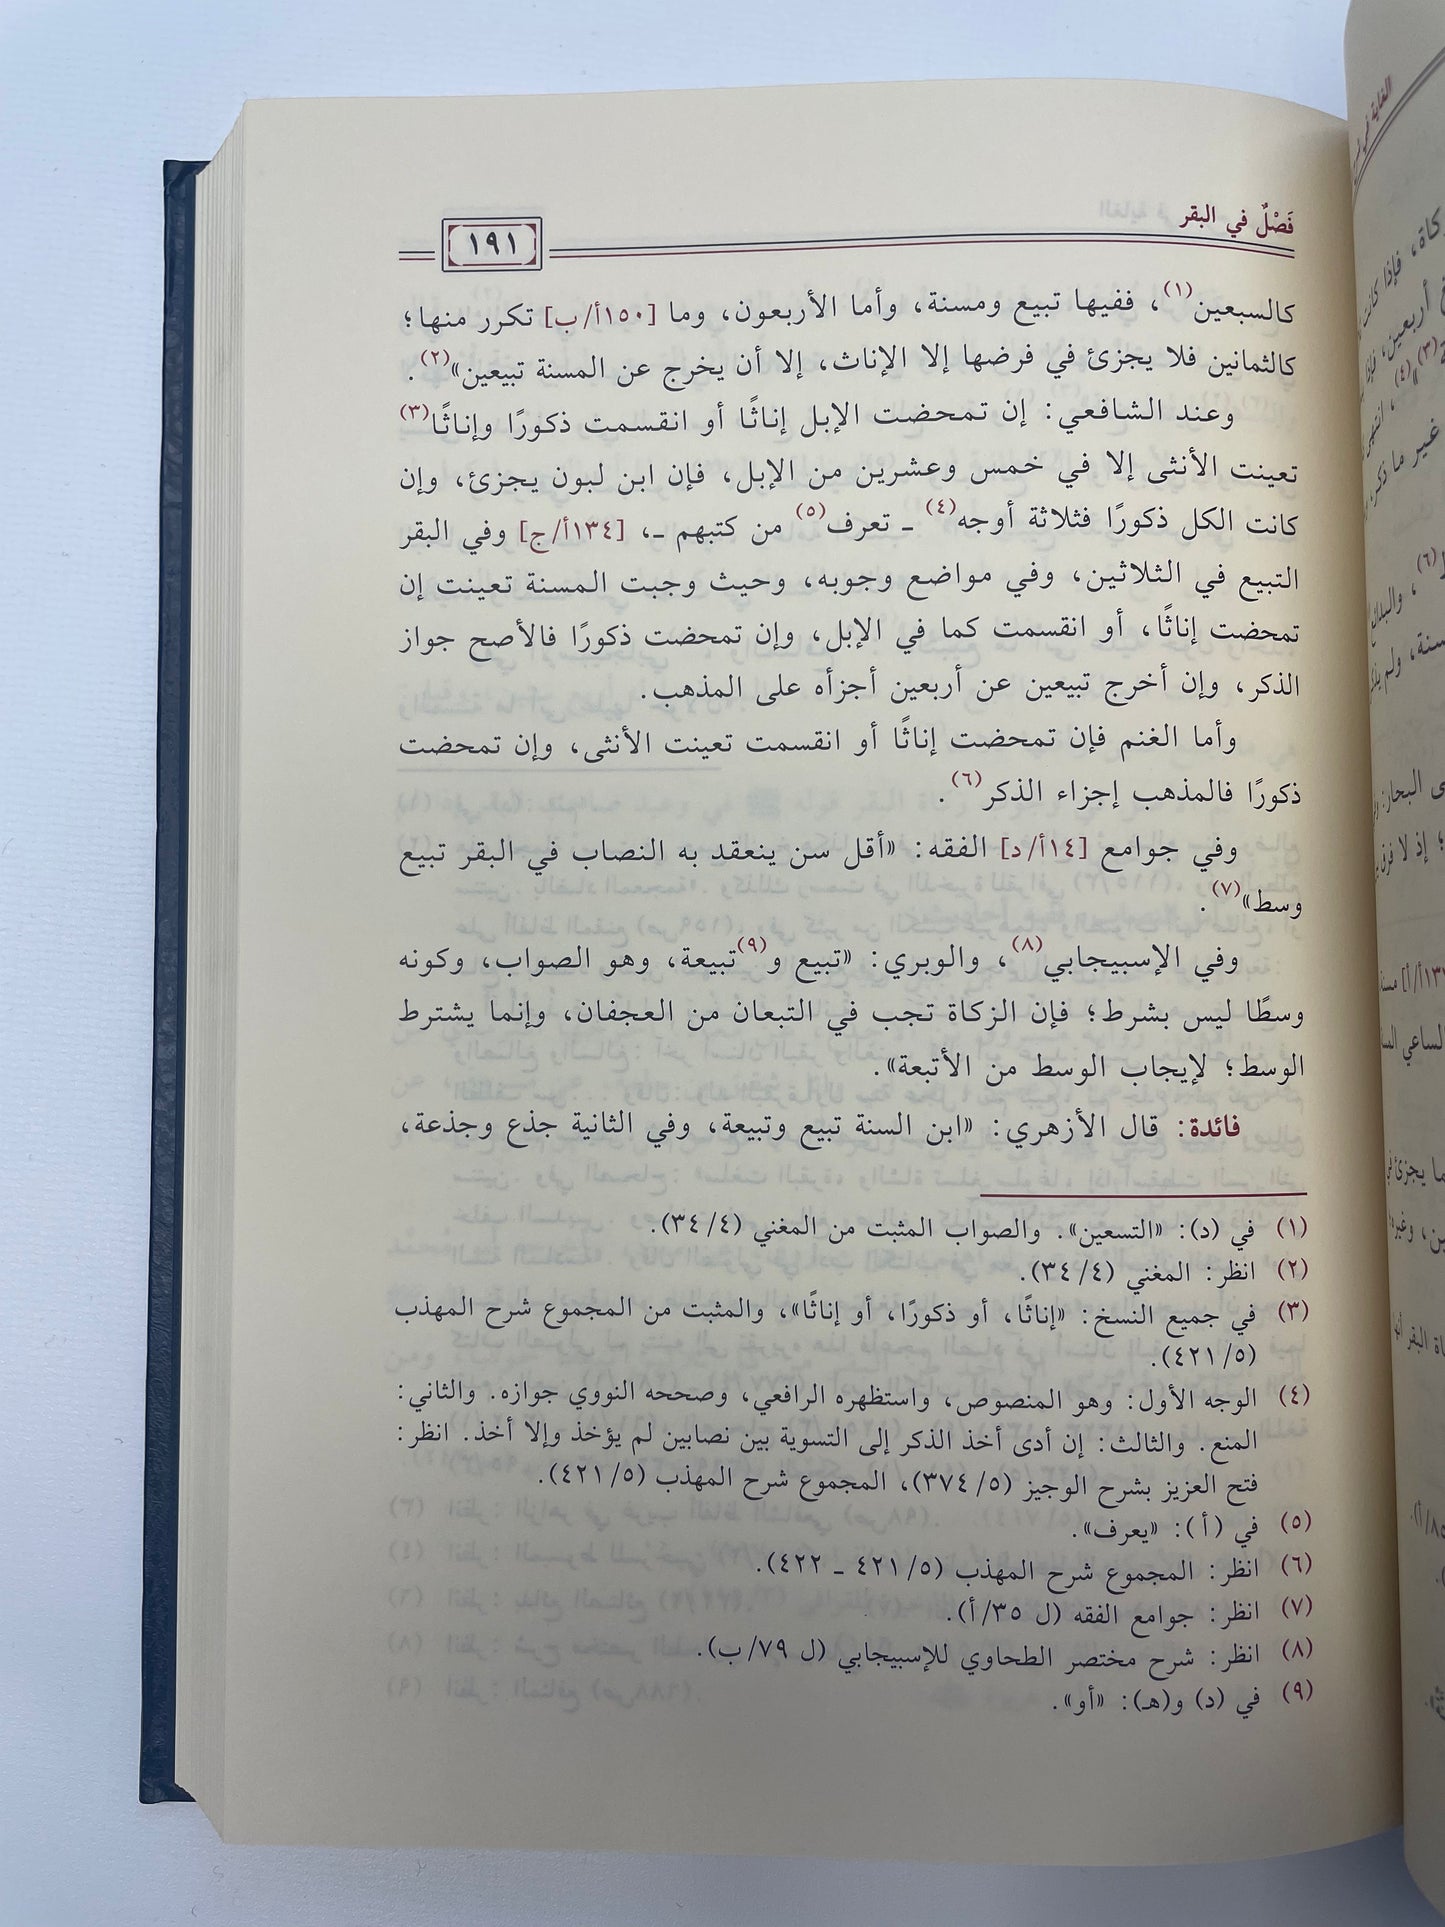 فَصْلٌ في البقر
١٩١
كالسبعين(١)، ففيها تبيع ومسنة، وأما الأربعون، وما [١٥٠أ/ب] تكرر منها؛
كالثمانين فلا يجزئ في فرضها إلا الإناث، إلا أن يخرج عن المسنة تبيعين»(٢).
وعند الشافعي: إن تمحضت الإبل إناثًا أو انقسمت ذكورًا وإناثًا(٣)
تعينت الأنثى إلا في خمس وعشرين من الإبل، فإن ابن لبون يجزئ، وإن
كانت الكل ذكورًا فثلاثة أوجه(٤) ـ تعرف(٥) من كتبهم ـ، [١٣٤أ/ج] وفي البقر
التبيع في الثلاثين، وفي مواضع وجوبه، وحيث وجبت المسنة تعينت إن
تمحضت إناثًا، أو انقسمت كما في الإبل، وإن تمحضت ذكورًا فالأصح جواز
الذكر، وإن أخرج تبيعين عن أربعين أجزأه على المذهب.
وأما الغنم فإن تمحضت إناثًا أو انقسمت تعينت الأنثى، وإن تمحضت
ذكورًا فالمذهب إجزاء الذكر(٦).
وفي جوامع [١٤أ/د] الفقه: «أقل سن ينعقد به النصاب في البقر تبيع
وسط»(٧).
وفي الإسبيجابي(٨)، والوبري: «تبيع و(٩)تبيعة، وهو الصواب، وكونه
وسطًا ليس بشرط؛ فإن الزكاة تجب في التبعان من العجفان، وإنما يشترط
الوسط؛ لإيجاب الوسط من الأتبعة».
فائدة: قال الأزهري: «ابن السنة تبيع وتبيعة، وفي الثانية جذع وجذعة،
(١) في (د): «التسعين». والصواب المثبت من المغني (٣٤/٤).
(٢) انظر: المغني (٣٤/٤).
(٣) في جميع النسخ: «إناثًا، أو ذكورًا، أو إناثًا»، والمثبت من المجموع شرح المهذب
(٤٢١/٥).
(٤) الوجه الأول: وهو المنصوص، واستظهره الرافعي، وصححه النووي جوازه. والثاني:
المنع. والثالث: إن أدى أخذ الذكر إلى التسوية بين نصابين لم يؤخذ وإلا أخذ. انظر:
فتح العزيز بشرح الوجيز (٣٧٤/٥)، المجموع شرح المهذب (٤٢١/٥).
(٥) في (أ): «يعرف».
(٦) انظر: المجموع شرح المهذب (٤٢١/٥ ـ ٤٢٢).
(٧) انظر: جوامع الفقه (ل ٣٥/أ).
(٨) انظر: شرح مختصر الطحاوي للإسبيجابي (ل ٧٩/ب).
(٩) في (د) و(هـ): «أو».